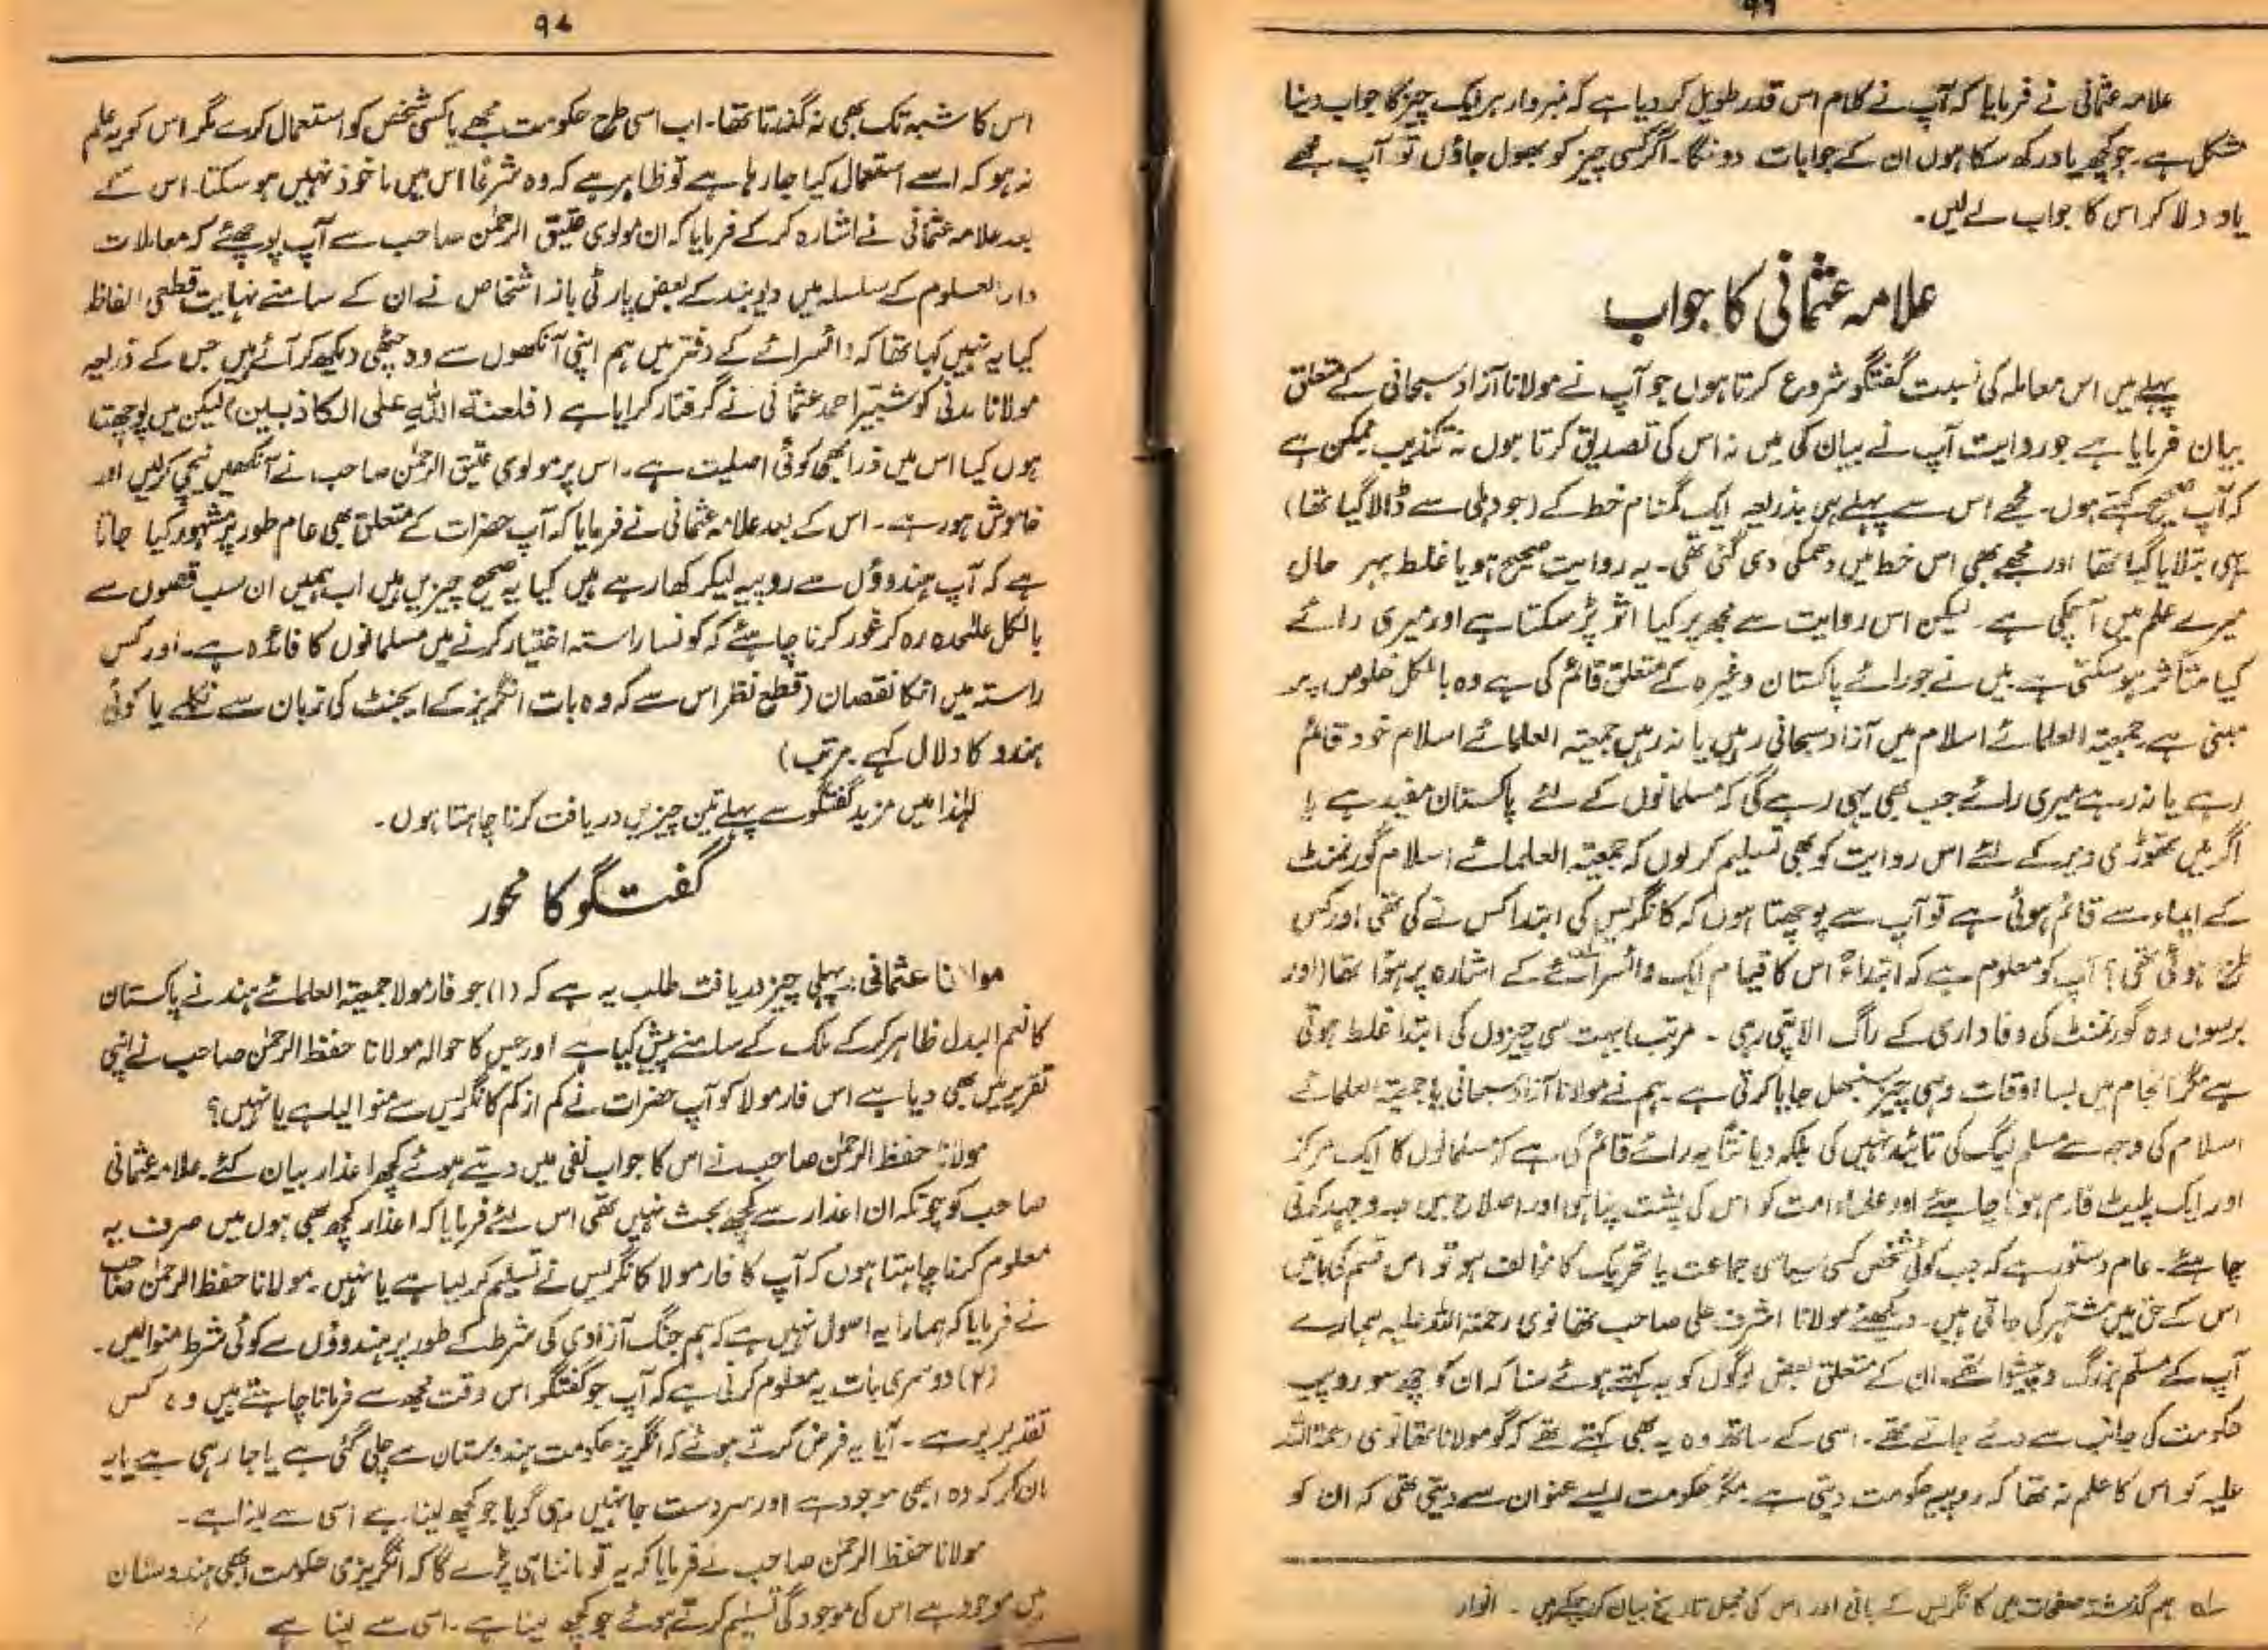 ۹۶
علامہ عثمانی نے فرمایا کہ آپ نے کلام اس قدر طویل کر دیا ہے کہ نمبروار ہر ایک چیز کا جواب دینا
مشکل ہے۔ جو کچھ یاد رکھ سکا ہوں ان کے جوابات دونگا۔ اگر کسی چیز کو بھول جاؤں تو آپ مجھے
یاد دلا کر اس کا جواب لے لیں۔
علامہ عثمانی کا جواب
پہلے میں اس معاملہ کی نسبت گفتگو شروع کرتا ہوں جو آپ نے مولانا آزاد سبحانی کے متعلق
بیان فرمایا ہے جو روایت آپ نے بیان کی میں نہ اس کی تصدیق کرتا ہوں نہ تکذیب ممکن ہے
کہ آپ صحیح کہتے ہوں۔ مجھے اس سے پہلے ہی بذریعہ ایک گمنام خط کے (جو دہلی سے ڈالا گیا تھا)
یہی بتلایا گیا تھا اور مجھے بھی اس خط میں دھمکی دی گئی تھی۔ یہ روایت صحیح ہو یا غلط بہر حال
میرے علم میں آچکی ہے۔ لیکن اس روایت سے مجھ پر کیا اثر پڑ سکتا ہے اور میری رائے
کیا متاثر ہو سکتی ہے میں نے جو رائے پاکستان وغیرہ کے متعلق قائم کی ہے وہ بالکل خلوص پر
مبنی ہے جمعیۃ العلمائے اسلام میں آزاد سبحانی رہیں یا نہ رہیں جمعیۃ العلمائے اسلام خود قائم
رہے یا نہ رہے میری رائے جب بھی یہی رہے گی کہ مسلمانوں کے لئے پاکستان مفید ہے یا
اگر میں تھوڑی دیر کے لئے اس روایت کو بھی تسلیم کر لوں کہ جمعیۃ العلمائے اسلام گورنمنٹ
کے ایماء سے قائم ہوئی ہے تو آپ سے پوچھتا ہوں کہ کانگریس کی ابتدا کس نے کی تھی اور کس
طرح ہوئی تھی؟ آپ کو معلوم ہے کہ ابتداءً اس کا قیام ایک وائسرائے کے اشارہ پر ہوا تھا (اور
برسوں وہ گورنمنٹ کی وفاداری کے راگ الاپتی رہی۔ مرتب) بہت سی چیزوں کی ابتدا غلط ہوتی
ہے مگر انجام میں بسا اوقات وہی چیز سنبھل جایا کرتی ہے۔ ہم نے مولانا آزاد سبحانی یا جمعیۃ العلمائے
اسلام کی وجہ سے مسلم لیگ کی تائید نہیں کی بلکہ دیانتاً یہ رائے قائم کی ہے کہ مسلمانوں کا ایک مرکز
اور ایک پلیٹ فارم ہونا چاہئے اور علماء امت کو اس کی پشت پناہی اور اصلاح میں جدوجہد کرنی
چاہئے۔ عام دستور ہے کہ جب کوئی شخص کسی سیاسی جماعت یا تحریک کا مخالف ہو تو اس قسم کی باتیں
اس کے حق میں مشتہر کی جاتی ہیں۔ دیکھئے مولانا اشرف علی صاحب تھانوی رحمۃ اللہ علیہ ہمارے
آپ کے مسلم بزرگ و پیشوا تھے۔ ان کے متعلق بعض لوگوں کو یہ کہتے ہوئے سنا کہ ان کو چھ سو روپیہ
حکومت کی جانب سے دئے جاتے تھے۔ اسی کے ساتھ وہ یہ بھی کہتے تھے کہ گو مولانا تھانوی رحمۃ اللہ
علیہ کو اس کا علم نہ تھا کہ روپیہ حکومت دیتی ہے۔ مگر حکومت ایسے عنوان سے دیتی تھی کہ ان کو
لہ ہم گذشتہ صفحات میں کانگریس کے بانی اور اس کی مجمل تاریخ بیان کر چکے ہیں۔ انوار
۹۷
اس کا شبہ تک بھی نہ گذرتا تھا۔ اب اسی طرح حکومت مجھے یا کسی شخص کو استعمال کرے مگر اس کو یہ علم
نہ ہو کہ اسے استعمال کیا جا رہا ہے تو ظاہر ہے کہ وہ شرعًا اس میں ماخوذ نہیں ہو سکتا۔ اس کے
بعد علامہ عثمانی نے اشارہ کر کے فرمایا کہ ان مولوی عتیق الرحمٰن صاحب سے آپ پوچھئے کہ معاملات
دارالعلوم کے سلسلہ میں دیوبند کے بعض پارٹی باز اشخاص نے ان کے سامنے نہایت قطعی الفاظ
کیا یہ نہیں کہا تھا کہ وائسرائے کے دفتر میں ہم اپنی آنکھوں سے وہ چٹھی دیکھ کر آئے ہیں جس کے ذریعہ
مولانا مدنی کو شبیر احمد عثمانی نے گرفتار کرایا ہے (فلعنۃ اللہ علی الکاذبین) لیکن میں پوچھتا
ہوں کیا اس میں ذرا بھی کوئی اصلیت ہے۔ اس پر مولوی عتیق الرحمٰن صاحب نے آنکھیں نیچی کر لیں اور
خاموش ہو رہے۔ اس کے بعد علامہ عثمانی نے فرمایا کہ آپ حضرات کے متعلق بھی عام طور پر مشہور کیا جاتا
ہے کہ آپ ہندوؤں سے روپیہ لیکر کھا رہے ہیں کیا یہ صحیح چیزیں ہیں اب ہمیں ان سب قصوں سے
بالکل علٰیحدہ رہ کر غور کرنا چاہئے کہ کونسا راستہ اختیار کرنے میں مسلمانوں کا فائدہ ہے۔ اور کس
راستہ میں انکا نقصان (قطع نظر اس سے کہ وہ بات انگریز کے ایجنٹ کی زبان سے نکلے یا کوئی
ہندو کا دلال کہے۔ مرتب)
لہٰذا میں مزید گفتگو سے پہلے تین چیزیں دریافت کرنا چاہتا ہوں۔
گفتگو کا محور
مولانا عثمانی: پہلی چیز دریافت طلب یہ ہے کہ (۱) جو فارمولا جمعیۃ العلمائے ہند نے پاکستان
کا نعم البدل ظاہر کر کے ملک کے سامنے پیش کیا ہے اور جس کا حوالہ مولانا حفظ الرحمٰن صاحب نے اپنی
تقریر میں بھی دیا ہے اس فارمولا کو آپ حضرات نے کم از کم کانگریس سے منوا لیا ہے یا نہیں؟
مولانا حفظ الرحمٰن صاحب نے اس کا جواب نفی میں دیتے ہوئے کچھ اعذار بیان کئے۔ علامہ عثمانی
صاحب کو چونکہ ان اعذار سے کچھ بحث نہیں تھی اس لئے فرمایا کہ اعذار کچھ بھی ہوں میں صرف یہ
معلوم کرنا چاہتا ہوں کہ آپ کا فارمولا کانگریس نے تسلیم کر لیا ہے یا نہیں۔ مولانا حفظ الرحمٰن صاحب
نے فرمایا کہ ہمارا یہ اصول نہیں ہے کہ ہم جنگ آزادی کی شرط کے طور پر ہندوؤں سے کوئی شرط منوالیں۔
(۲) دوسری بات یہ معلوم کرنی ہے کہ آپ جو گفتگو اس وقت مجھ سے فرمانا چاہتے ہیں وہ کس
تقدیر پر ہے۔ آیا یہ فرض کرتے ہوئے کہ انگریز حکومت ہندوستان سے چلی گئی ہے یا جا رہی ہے یا یہ
مان کر کہ وہ ابھی موجود ہے اور سردست جا نہیں رہی گویا جو کچھ لینا ہے اسی سے لینا ہے۔
مولانا حفظ الرحمٰن صاحب نے فرمایا کہ یہ تو ماننا ہی پڑے گا کہ انگریزی حکومت ابھی ہندوستان
میں موجود ہے اس کی موجودگی تسلیم کرتے ہوئے جو کچھ لینا ہے۔ اسی سے لینا ہے